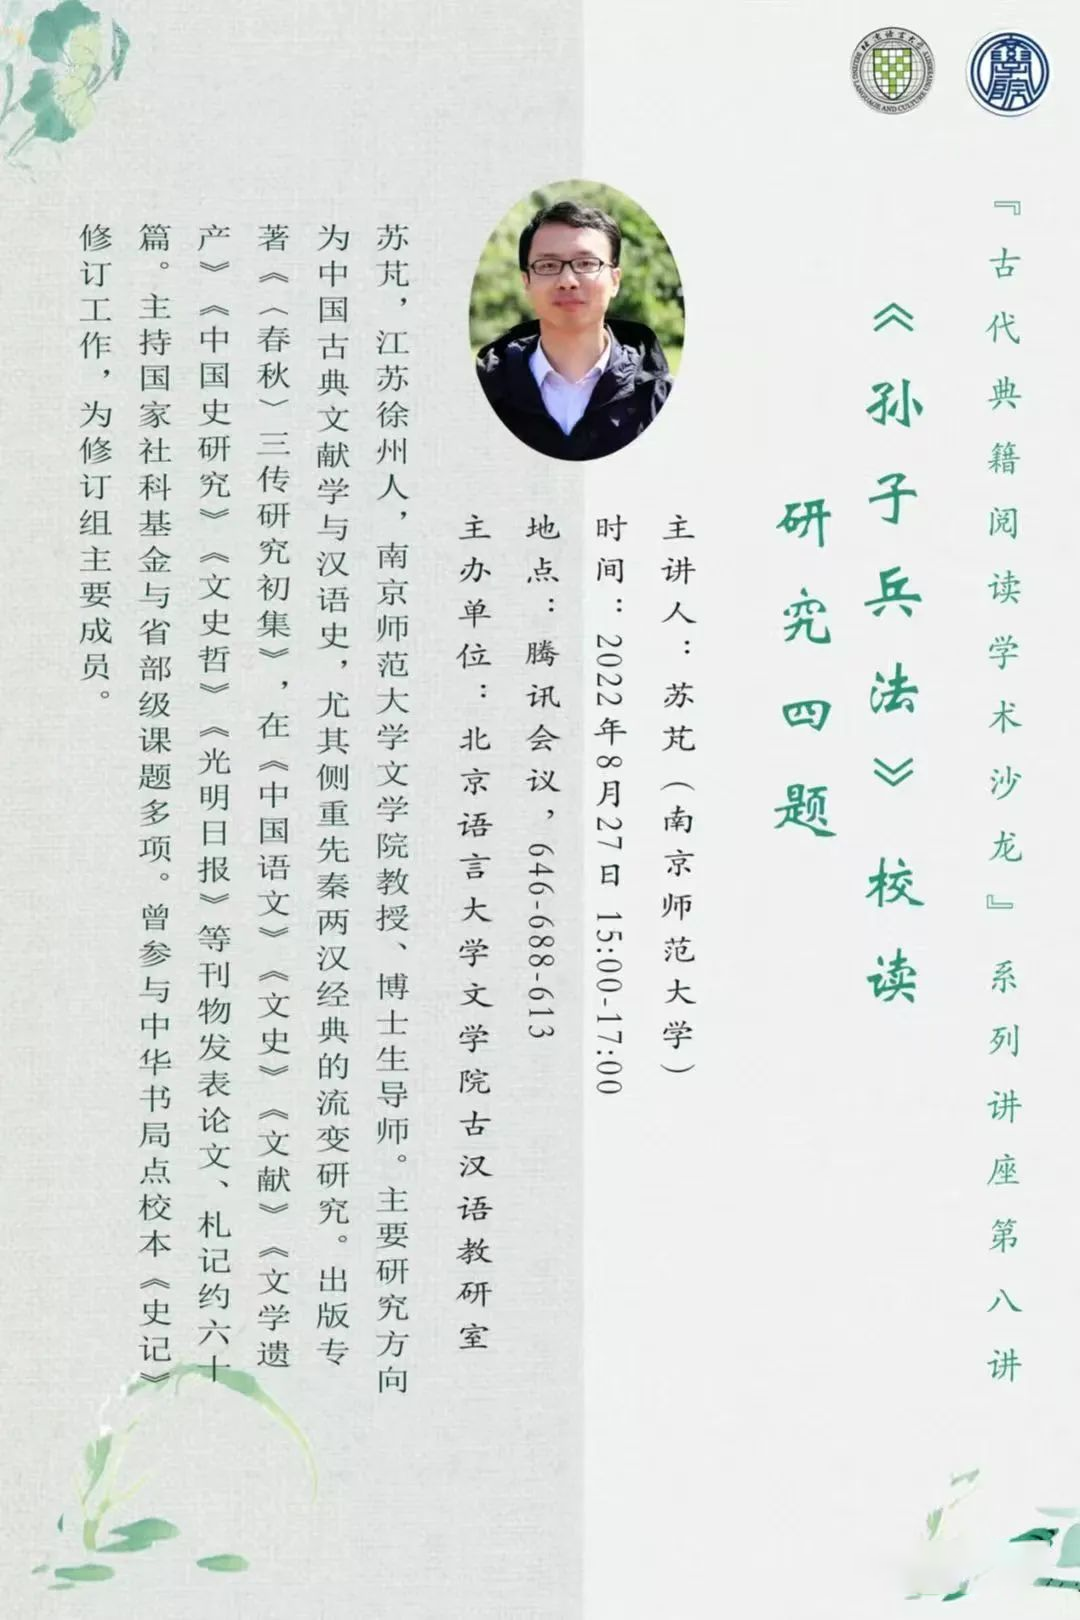 『古代典籍阅读学术沙龙』系列讲座第八讲
《孙子兵法》校读
研究四题
主讲人：苏芃（南京师范大学）
时间：2022年8月27日 15:00-17:00
地点：腾讯会议，646-688-613
主办单位：北京语言大学文学院古汉语教研室
苏芃，江苏徐州人，南京师范大学文学院教授、博士生导师。主要研究方向
为中国古典文献学与汉语史，尤其侧重先秦两汉经典的流变研究。出版专
著《〈春秋〉三传研究初集》，在《中国语文》《文史》《文献》《文学遗
产》《中国史研究》《文史哲》《光明日报》等刊物发表论文、札记约六十
篇。主持国家社科基金与省部级课题多项。曾参与中华书局点校本《史记》
修订工作，为修订组主要成员。
北京语言大学
BEIJING LANGUAGE AND CULTURE UNIVERSITY